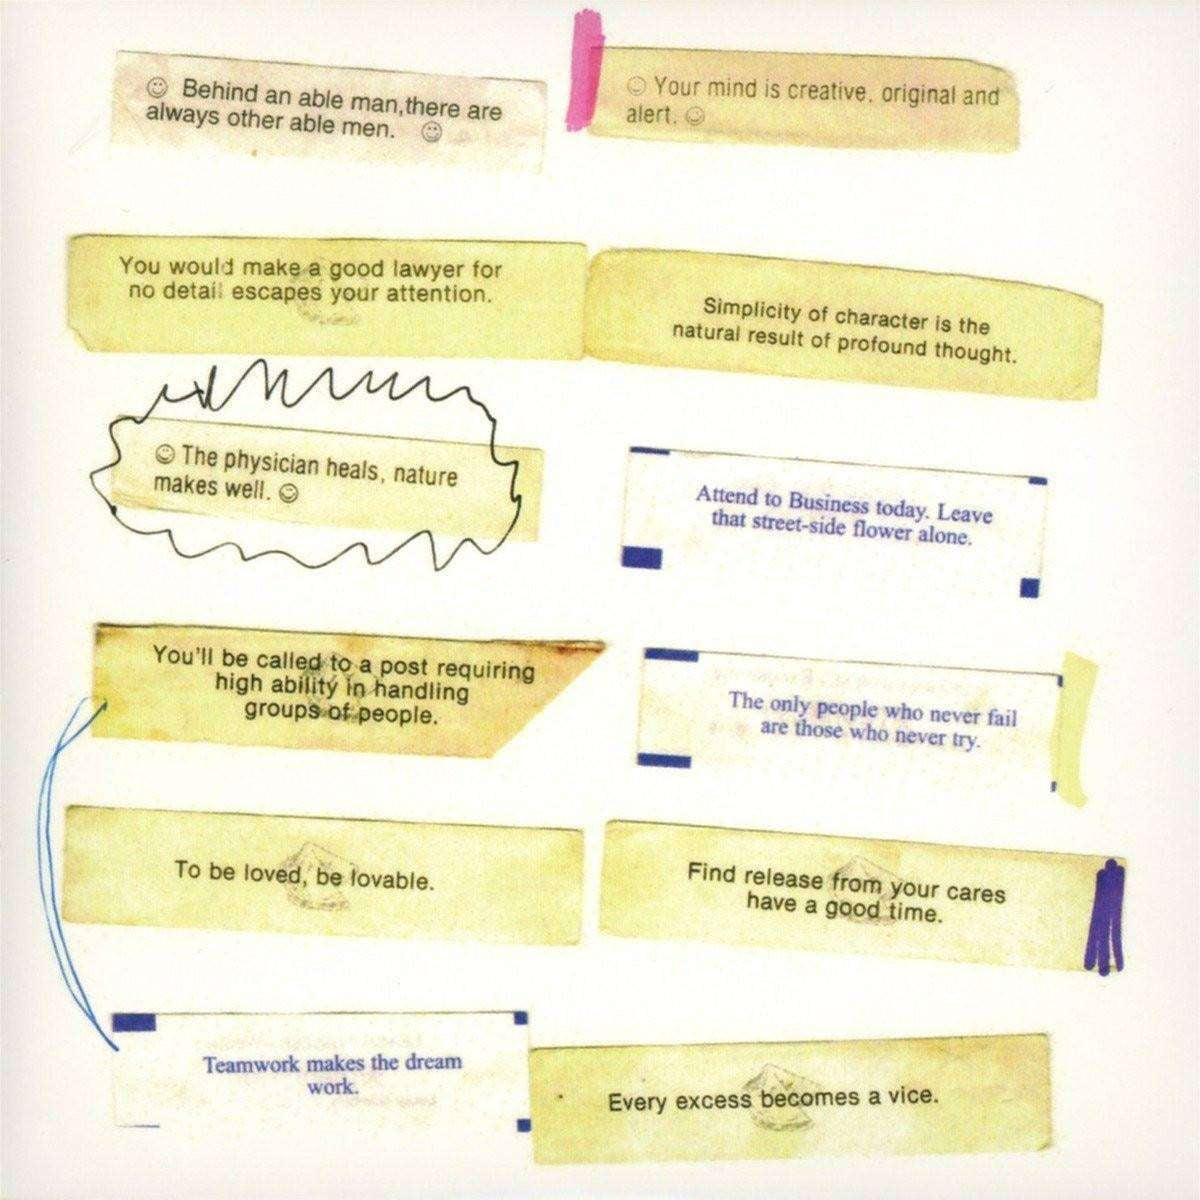 ☺ Behind an able man,there are
always other able men. ☺
☺ Your mind is creative, original and
alert. ☺
You would make a good lawyer for
no detail escapes your attention.
Simplicity of character is the
natural result of profound thought.
☺ The physician heals, nature
makes well. ☺
Attend to Business today. Leave
that street-side flower alone.
You'll be called to a post requiring
high ability in handling
groups of people.
The only people who never fail
are those who never try.
To be loved, be lovable.
Find release from your cares
have a good time.
Teamwork makes the dream
work.
Every excess becomes a vice.